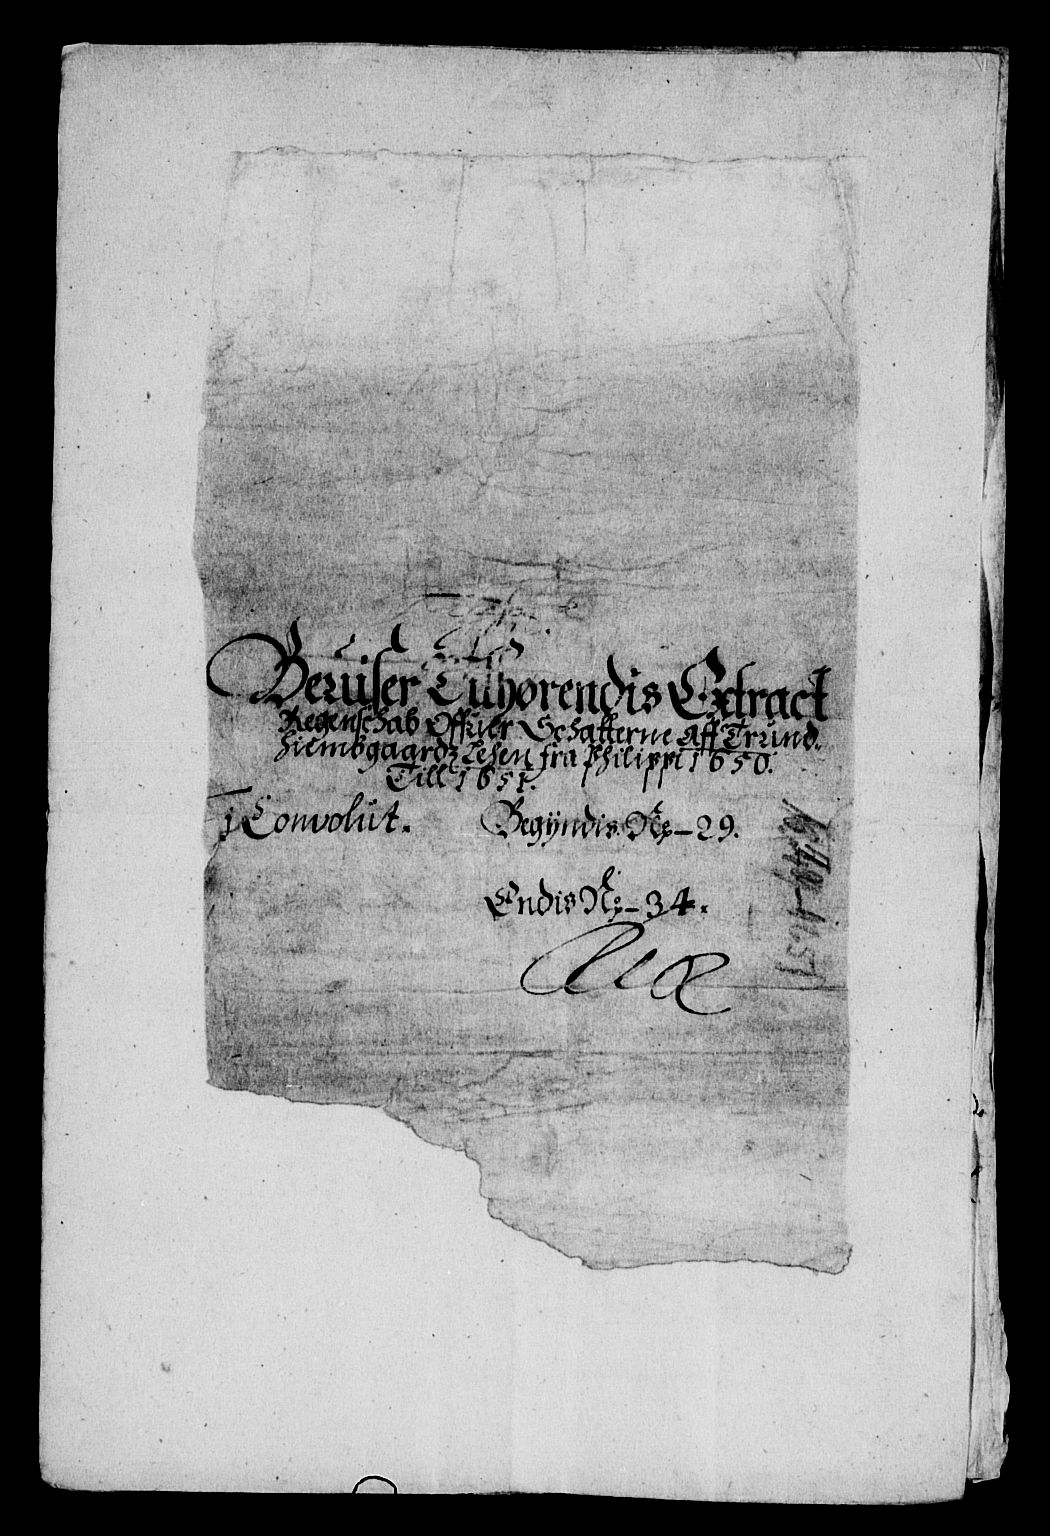 Beruiser Tilhørendis Extract
Regenschab Offuer Schatterne Aff Trund-
hiembgaardz Lehen fra Philippi 1650.
Till 1651.
j Convolut. Begÿndis Nr - 29.
Endis Nr - 34.